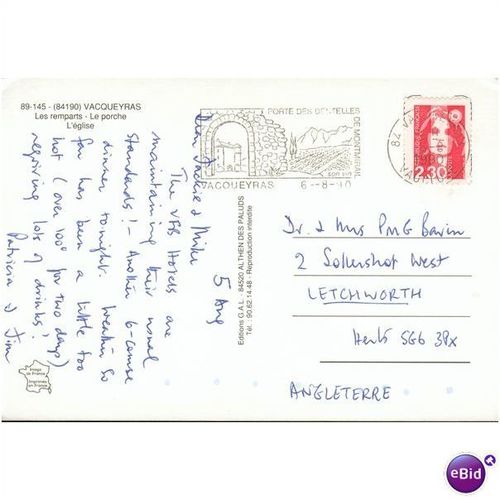 89-145 - (84190) VACQUEYRAS
Les remparts - Le porche
L'église
5 Aug
Dear Jackie & Mike
The VFB Hotels are
maintaining their usual
standards! - Another 6-course
dinner tonight. Weather so
far has been a little too
hot (over 100° for two days)
requiring lots of drinks!
Patricia & Jim
Image
de France
Imprimée
en France
Editions G.A.L. - 84520 ALTHEN DES PALUDS
Tél. : 90.62.14.48 - Reproduction interdite
PORTE DES DENTELLES
DE MONTMIRAIL
SON VIN
VACQUEYRAS 6-8-10
82
2.30
Dr. & Mrs PMG Bavin
2 Sollershot West
LETCHWORTH
Herts SG6 3PX
ANGLETERRE
eBid